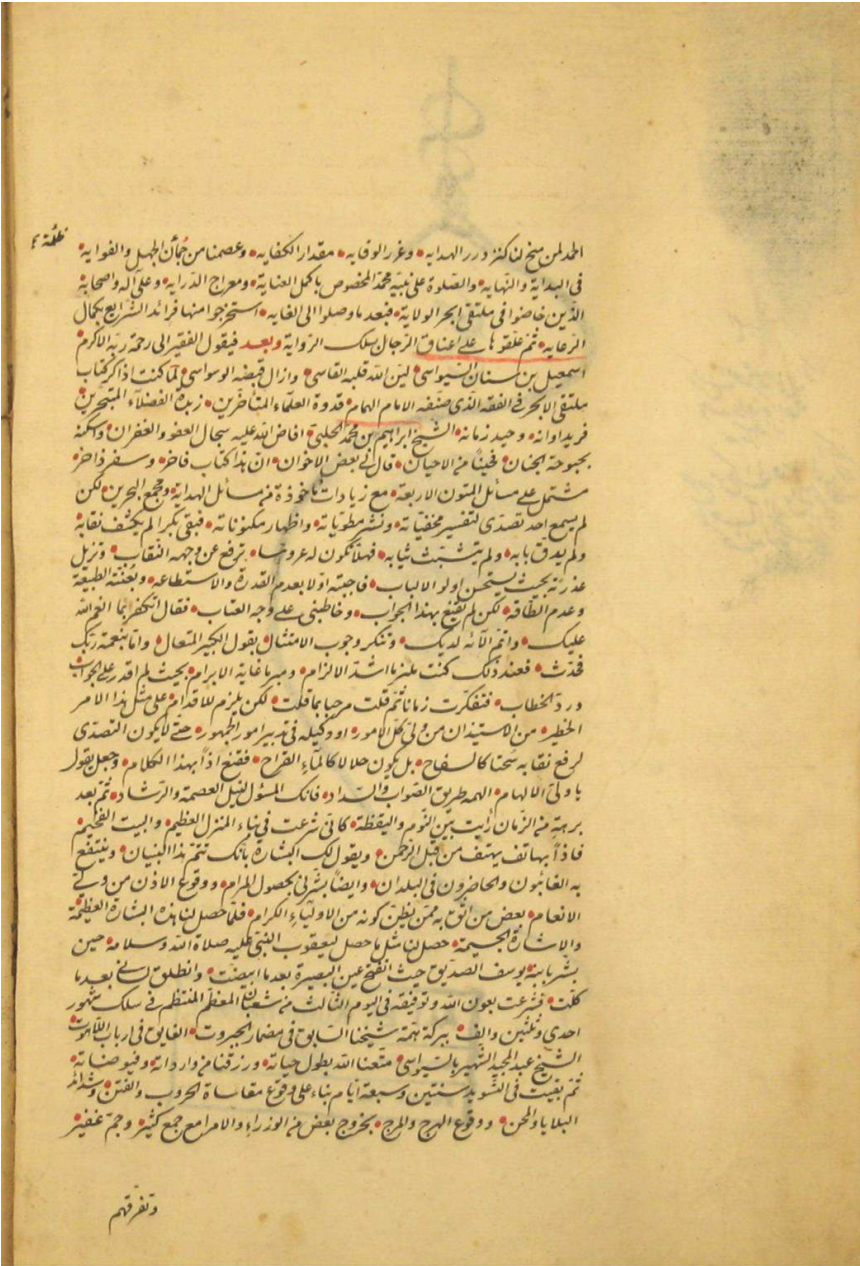 الحمد لمن منح لنا كنز درر الهدايه وغرر الوقايه مقدار الكفايه وعصمنا من الجهل والغوايه
في البداية والنهايه والصلوة على نبيه محمد المخصوص باكمل العناية ومعراج الدرايه وعلى آله واصحابه
الذين خاضوا في ملتقى ابحر الولاية فبعد ما وصلوا الى الغايه استخرجوا منها فرائد الشرايع بكمال
الرعايه ثم علقوها على اعناق الرجال سلك الرواية وبعد فيقول الفقير الى رحمة ربه الاكرم
اسمعيل بن سنان السيواسى لين الله قلبه القاسى وازال قبضه الوسواسى لما كنت اذاكر كتاب
ملتقى الابحر في الفقه الذى صنفه الامام الهمام قدوة العلماء المتاخرين زبدة الفضلاء المتبحرين
فريد اوانه وحيد زمانه الشيخ ابراهيم بن محمد الحلبى افاض الله عليه سجال العفو والغفران واسكنه
بحبوحة الجنان فحينا من الاحيان قال لى بعض الاخوان ان هذا كتاب فاخر وسفر ذاخر
مشتمل على مسائل المتون الاربعة مع زيادات ماخوذة من مسائل الهداية ومجمع البحرين لكن
لم يسمع احد تصدى لتفسير مخفياته ونشر مطوياته واظهار مكنوناته فبقى بكرا لم يكشف نقابه
ولم يدق بابه ولم يتشبث ثيابه فهلا تكون له عروسا ترفع عن وجهه النقاب وتزيل
عذرته بحيث يستحسن اولو الالباب فاجبته اولا بعدم القدرة والاستطاعه
وعدم الطاقه لكن لم يقنع بهذا الجواب وخاطبنى على وجه العتاب فقال اتكفر بما انعم الله
عليك واتم آلائه لديك وتنكر وجوب الامتثال بقول الكبير المتعال واما بنعمة ربك
فحدث فعند ذلك كنت ملزما اشد الالزام ومبرما غاية الابرام بحيث لم اقدر على الجواب
ورد الخطاب فتفكرت زمانا ثم قلت مرحبا بما قلت لكن يلزم للاقدام على مثل هذا الامر
الخطير من الاستيذان من ولى كل الامور او وكيله في تدبير امور الجمهور حتى لا يكون التصدى
لرفع نقابه سحتا كالسفاح بل يكون حلالا كالماء القراح فقنع اذا بهذا الكلام وجعل يقول
يا ولى الالهام الهمه طريق الصواب والسداد فانك المسؤل لنيل العصمة والرشاد ثم بعد
برهة من الزمان رايت بين النوم واليقظة كانى شرعت في بناء المنزل العظيم والبيت الفخيم
فاذا بهاتف يهتف من قبل الرحمن ويقول لك البشارة بانك تتم هذا البنيان وينتفع
به الغائبون والحاضرون في البلدان وايضا بشرنى بحصول المرام ووقوع الاذن من ولى
الانعام بعض من اثق به ممن يظن كونه من الاولياء الكرام فلما حصل لنا هذه البشارة العظيمة
والاشارة الجسيمة حصل لنا مثل ما حصل ليعقوب النبى عليه صلاة الله وسلامه حين
بشر بابنه يوسف الصديق حيث انفتح عين البصيرة بعد ما ابيضت وانطلق لسانى بعد ما
كلت فشرعت بعون الله وتوفيقه في اليوم الثالث من شعبان المعظم المنتظم في سلك شهور
احدى وثلثين والف ببركة همة شيخنا السابق في مضمار الجبروت الفايق في ارباب اللاهوت
الشيخ عبد المجيد الشهير بالسيواسى متعنا الله بطول حياته ورزقنا من وارداته وفيوضاته
ثم بقيت في التسويد سنتين وسبعة ايام بناء على وقوع مقاساة الحروب والفتن وشدائد
البلايا والمحن ووقوع الهرج والمرج بخروج بعض من الوزراء والامرا مع جمع كثير وجم غفير
وتفرقهم